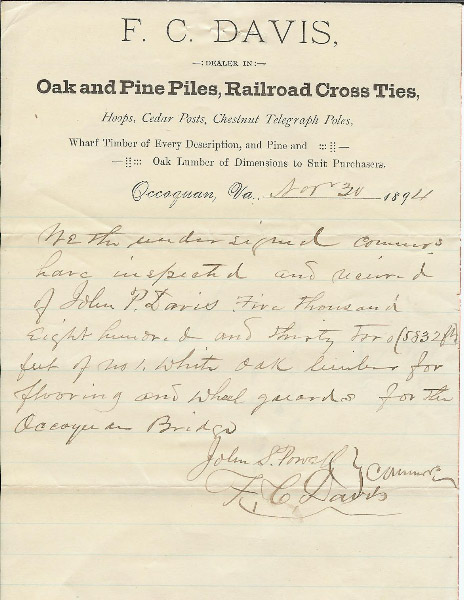 F. C. DAVIS,
—:DEALER IN:—
Oak and Pine Piles, Railroad Cross Ties,
Hoops, Cedar Posts, Chestnut Telegraph Poles,
Wharf Timber of Every Description, and Pine and
Oak Lumber of Dimensions to Suit Purchasers.
Occoquan, Va., Nov 30 1894
We the undersigned commrs
have inspected and received
of John P. Davis Five thousand
Eight hundred and thirty two (5832 ft)
feet of No 1. White oak lumber for
flooring and wheel guards for the
Occoquan Bridge
John S. Powell
F. C. Davis